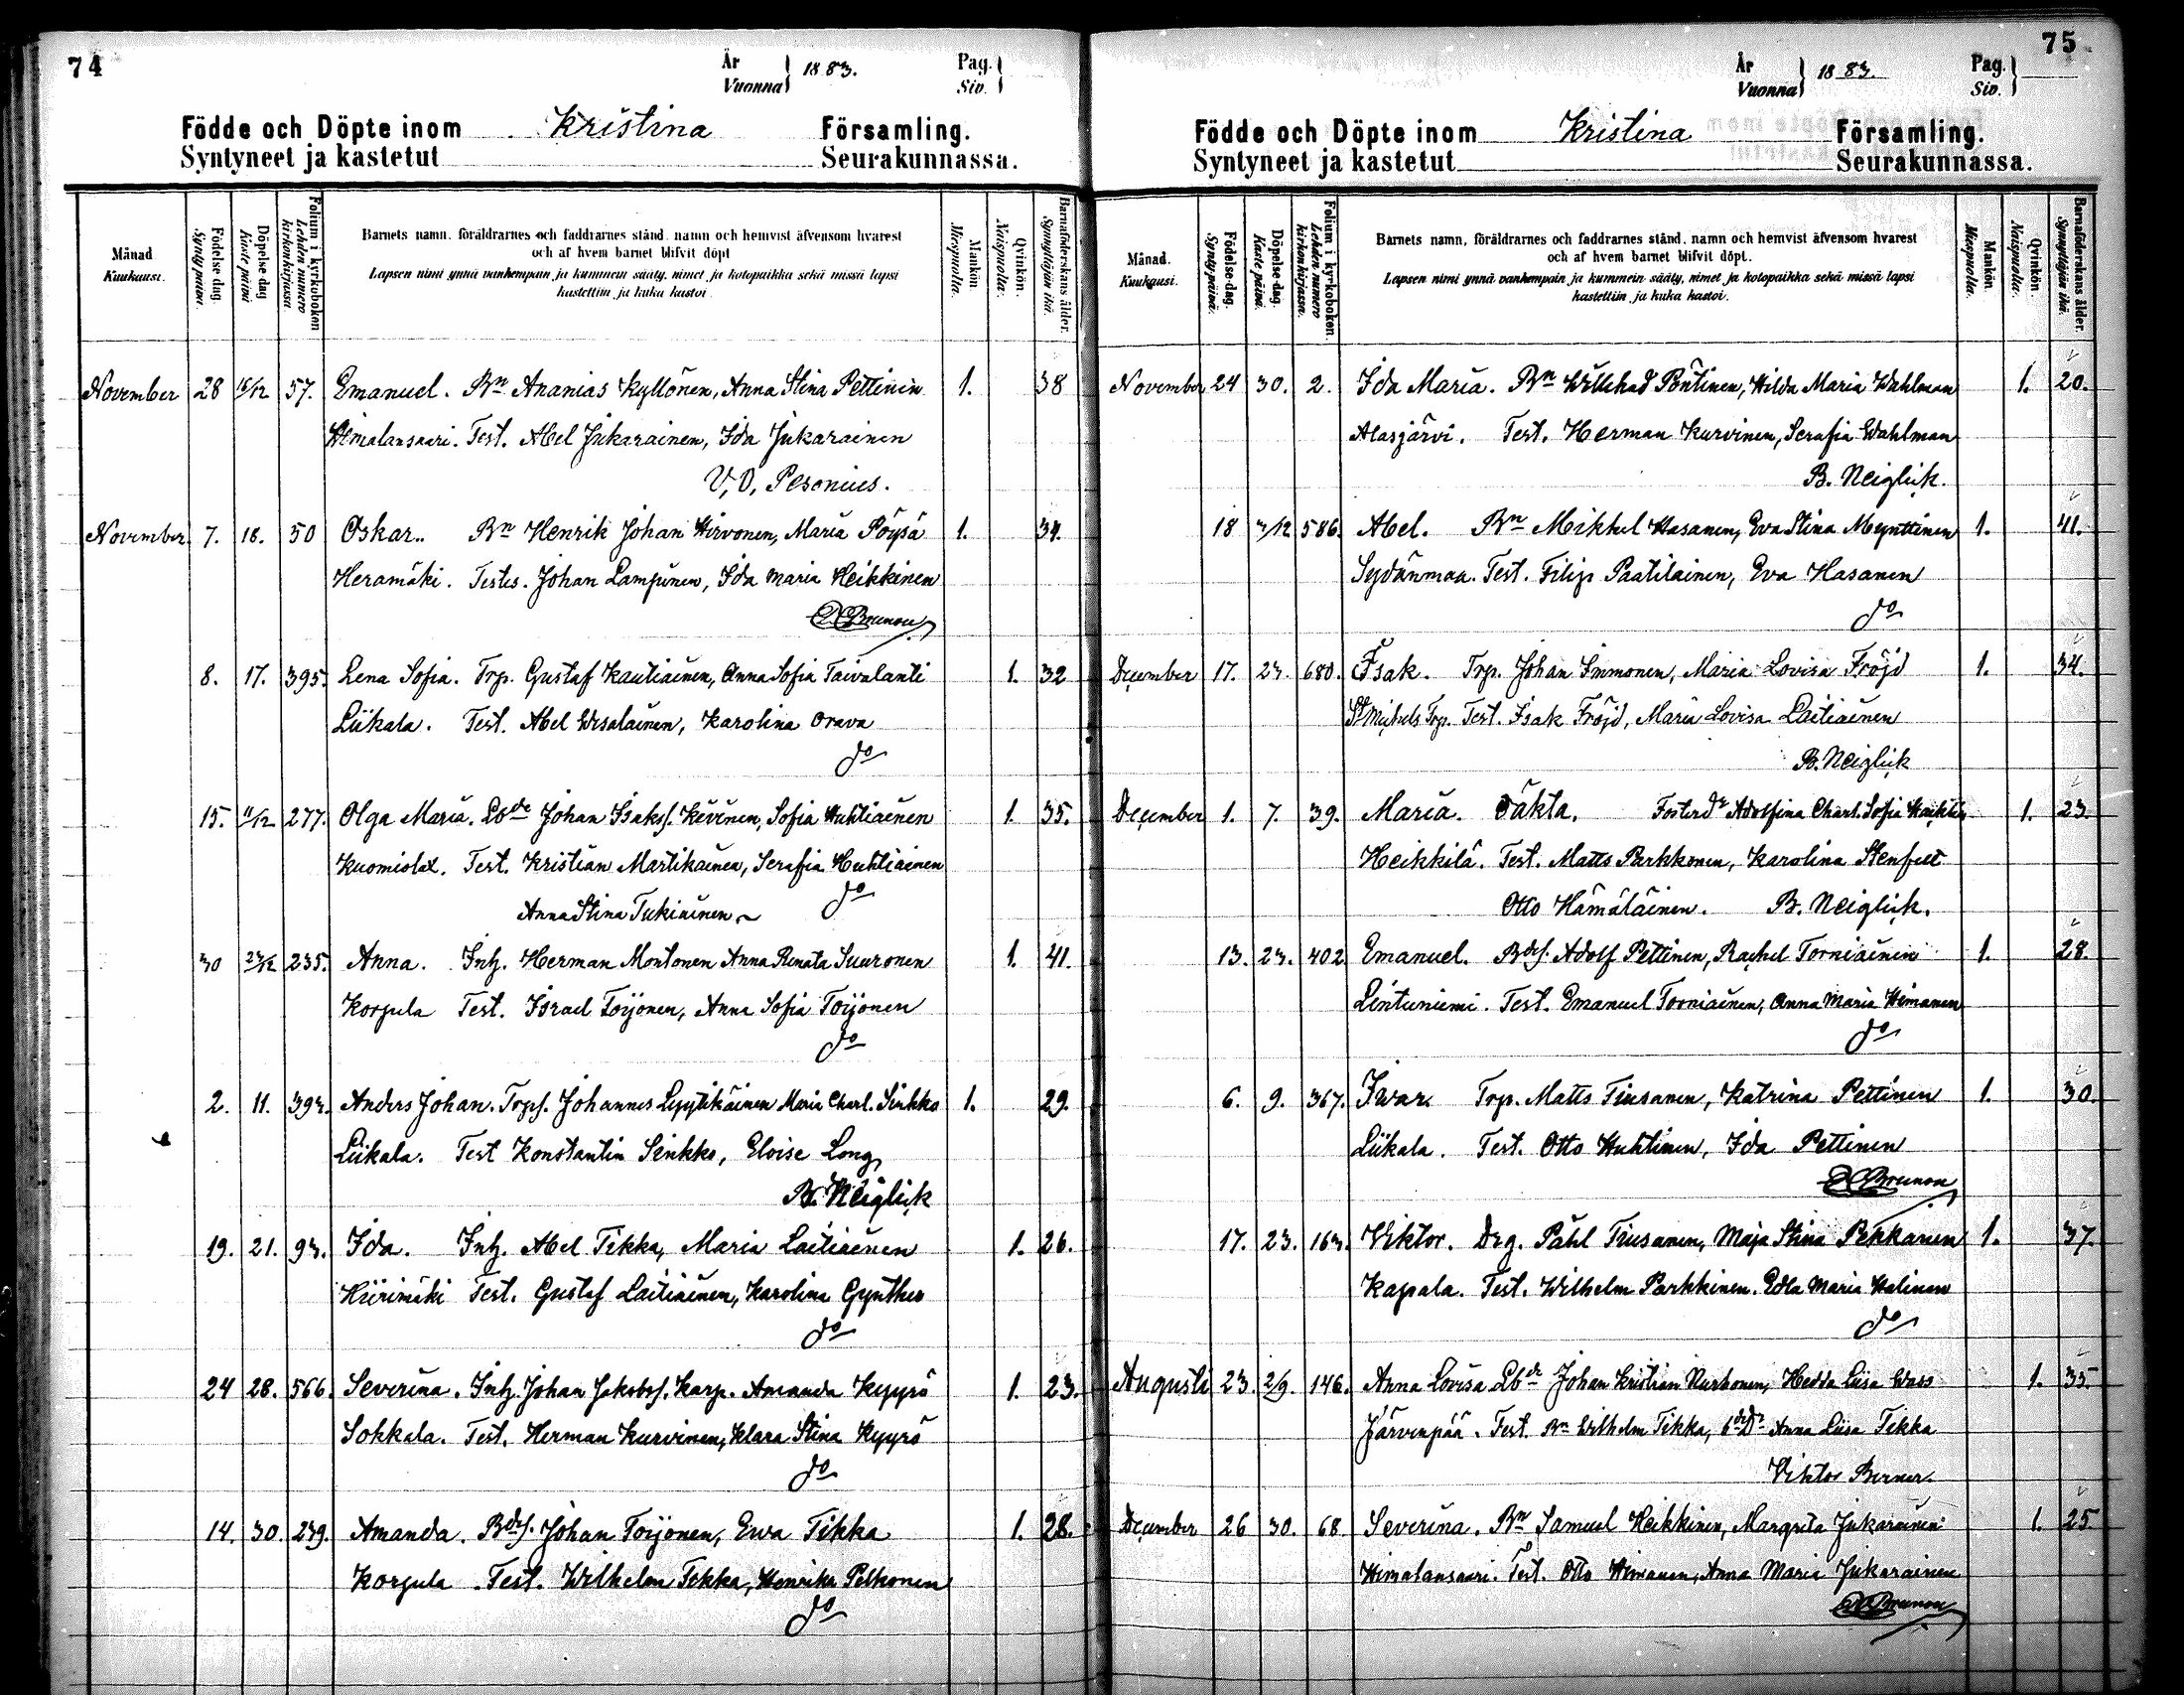 74
År Vuonna 1883. Pag. Siv.
Födde och Döpte inom Kristina Församling.
Syntyneet ja kastetut Seurakunnassa.
Månad Kuukausi.
Födelse dag. Synty päivä.
Döpelse dag Kaste päivä
Folium i kyrkoboken Lehden numero kirkonkirjassa.
Barnets namn, föräldrarnes och faddrarnes stånd, namn och hemvist äfvensom hvarest
och af hvem barnet blifvit döpt
Lapsen nimi ynnä vanhempain ja kummein sääty, nimet ja kotopaikka sekä missä lapsi
kastettiin ja kuka kastoi.
Mankön Miespuolta.
Qvinkön. Naispuolta.
Barnaföderskans ålder. Synnyttäjän ikä.
November 28 16/12 57. Emanuel. Bn Ananias Kyllönen, Anna Stina Pettinin 1. 38
Himalansaari. Test. Abel Jukarainen, Ida Jukarainen
V. O. Pesonius.
November 7. 18. 50 Oskar. Bn Henrik Johan Hirvonen, Maria Pöysä 1. 34.
Heramäki. Testes. Johan Lampinen, Ida Maria Heikkinen
Brunou
8. 17. 395. Lena Sofia. Trp. Gustaf Kautiainen, Anna Sofia Taivalanti 1. 32
Liikala. Test. Abel Wesalainen, Karolina Orava
do
15. 11/12 277. Olga Maria. Lbde Johan Isakss. Kivinen, Sofia Huhtiainen 1. 35.
Kuomiolax. Test. Kristian Martikainen, Serafia Huhtiainen
Anna Stina Tukiainen do
30 23/12 235. Anna. Inh. Herman Montonen Anna Renata Suuronen 1. 41.
Korpula Test. Israel Toijonen, Anna Sofia Toijonen
do
2. 11. 393. Anders Johan. Trps. Johannes Lyytikäinen Maria Charl. Sinkko 1. 29.
Liikala. Test Konstantin Sinkko, Eloise Long
B. Neiglick
19. 21. 93. Ida. Inh. Abel Tikka, Maria Laitiainen 1. 26.
Hiirimäki Test. Gustaf Laitiainen, Karolina Gynther
do
24 28. 566. Severina. Inh. Johan Jakobss. Karp. Amanda Kyyrö 1. 23.
Sokkala. Test. Herman Kurvinen, Klara Stina Kyyrö
do
14. 30. 239. Amanda. Bdes. Johan Toijonen, Ewa Tikka 1. 28.
Korpula. Test. Wilhelm Tikka, Henrika Pelkonen
do
75
År Vuonna 1883. Pag. Siv.
Födde och Döpte inom Kristina Församling.
Syntyneet ja kastetut Seurakunnassa.
Månad. Kuukausi.
Födelse-dag. Synty päivä.
Döpelse-dag. Kaste päivä.
Folium i kyrkoboken. Lehden numero kirkonkirjassa.
Barnets namn, föräldrarnes och faddrarnes stånd, namn och hemvist äfvensom hvarest
och af hvem barnet blifvit döpt.
Lapsen nimi ynnä vanhempain ja kummein sääty, nimet ja kotopaikka sekä missä lapsi
kastettiin ja kuka kastoi.
Mankön. Miespuolta.
Qvinkön. Naispuolta.
Barnaföderskans ålder. Synnyttäjän ikä.
November 24 30. 2. Ida Maria. Bn Willehad Pöntinen, Hilda Maria Wahlman 1. 20.
Alasjärvi. Test. Herman Kurvinen, Serafia Wahlman
B. Neiglick.
18 3/12 586. Abel. Bn Mikkel Hasanen, Eva Stina Mynttinen 1. 41.
Sydänmaa. Test. Filip Paatilainen, Eva Hasanen
do
December 17. 23. 680. Isak. Trp. Johan Immonen, Maria Lovisa Fröjd 1. 34.
St Michels Trp. Test. Isak Fröjd, Maria Lovisa Laitiainen
B. Neiglick
December 1. 7. 39. Maria. Oäkta. Fosterdr Adolfina Charl. Sofia 1. 23.
Heikkilä. Test. Matts Parkkonen, Karolina Stenfelt
Otto Hämäläinen. B. Neiglick.
13. 23. 402 Emanuel. Bdes. Adolf Pettinen, Rachel Torniainin 1. 28.
Lintuniemi. Test. Emanuel Torniainen, Anna Maria Himanen
do
6. 9. 367. Iwar. Trp. Matts Tiusanen, Katrina Pettinen 1. 30.
Liikala. Test. Otto Huhtinen, Ida Pettinen
Brunou
17. 23. 163. Viktor. Drg. Påhl Tiusanen, Maja Stina Pekkanen 1. 37.
Kapala. Test. Wilhelm Parkkinen. Edla Maria Halinen
do
Augusti 23. 2/9. 146. Anna Lovisa Lbde Johan Kristian Nurhonen, Hedda Lisa Wass 1. 35.
Järvenpää. Test. Bn Wilhelm Tikka, Anna Liisa Tikka
Viktor Berner.
December 26 30. 68. Severina. Bn Samuel Heikkinen, Margreta Jukarainen 1. 25.
Himalansaari. Test. Otto Himanen, Anna Maria Jukarainen
Brunou